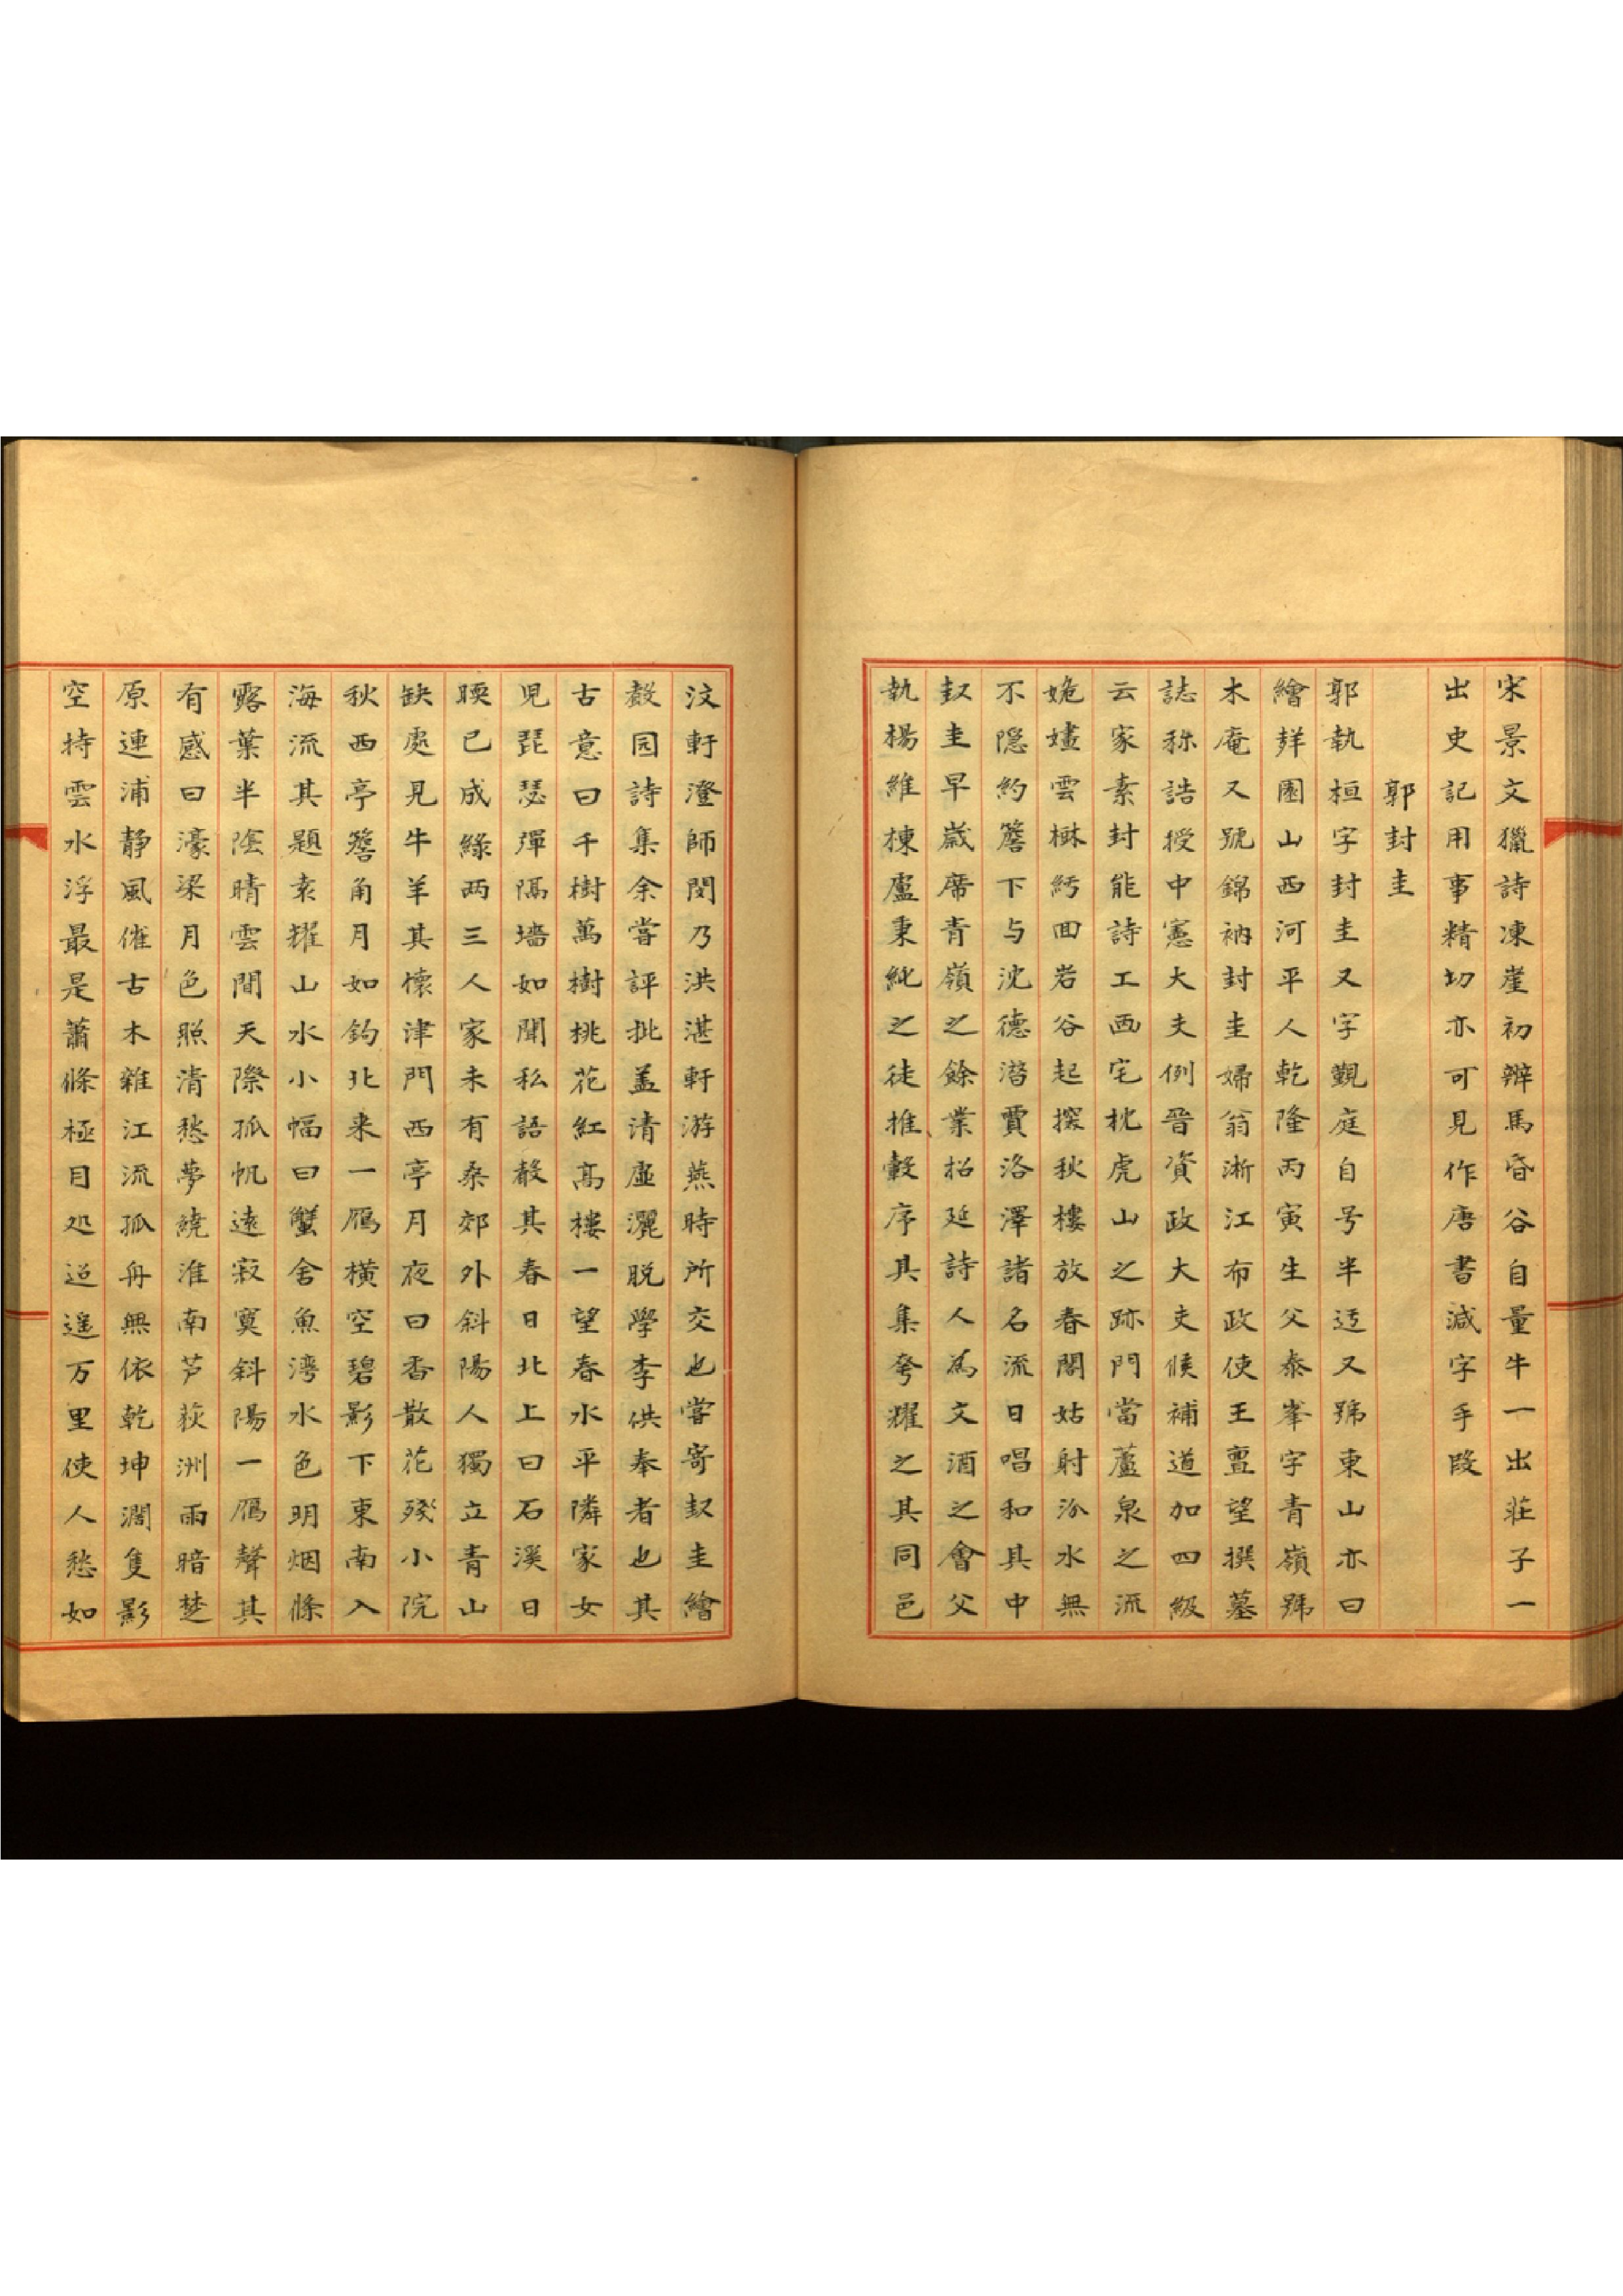 宋景文獵詩凍崖初辨馬昏谷自量牛一出莊子一
出史記用事精切亦可見作唐書減字手段
郭封圭
郭執桓字封圭又字覲庭自号半迃又號東山亦曰
繪㜔園山西河平人乾隆丙寅生父泰峯字青嶺號
木庵又號錦衲封圭婦翁淅江布政使王亶望撰墓
誌称誥授中憲大夫例晉資政大夫候補道加四級
云家素封能詩工画宅枕虎山之跡門當蘆泉之流
姽嫿雲楙紆回岩谷起探秋樓放春閣姑射汾水無
不隠約簷下与沈德潛賈洛澤諸名流日唱和其中
封圭早歲席青嶺之餘業招延詩人為文酒之會父
執楊維棟盧秉純之徒推轂序其集夸耀之其同邑
汶軒澄師閔乃洪湛軒游燕時所交也嘗寄封圭繪
聲园詩集余嘗評批盖清虛灑脱學李供奉者也其
古意曰千樹萬樹桃花紅高樓一望春水平隣家女
児琵瑟彈隔墻如聞私語聲其春日北上曰石溪日
䁔已成綠两三人家未有桑郊外斜陽人獨立青山
缺處見牛羊其懷津門西亭月夜曰香散花殘小院
秋西亭簷角月如鉤北来一鴈橫空碧影下東南入
海流其題袁耀山水小幅曰蟹舍魚湾水色明烟條
露葉半陰晴雲間天際孤帆遠寂寞斜陽一鴈聲其
有感曰濠梁月色照清愁夢繞淮南芦荻洲雨暗楚
原連浦静風催古木雜江流孤舟無依乾坤濶隻影
空持雲水浮最是蕭條極目処迢遥万里使人愁如